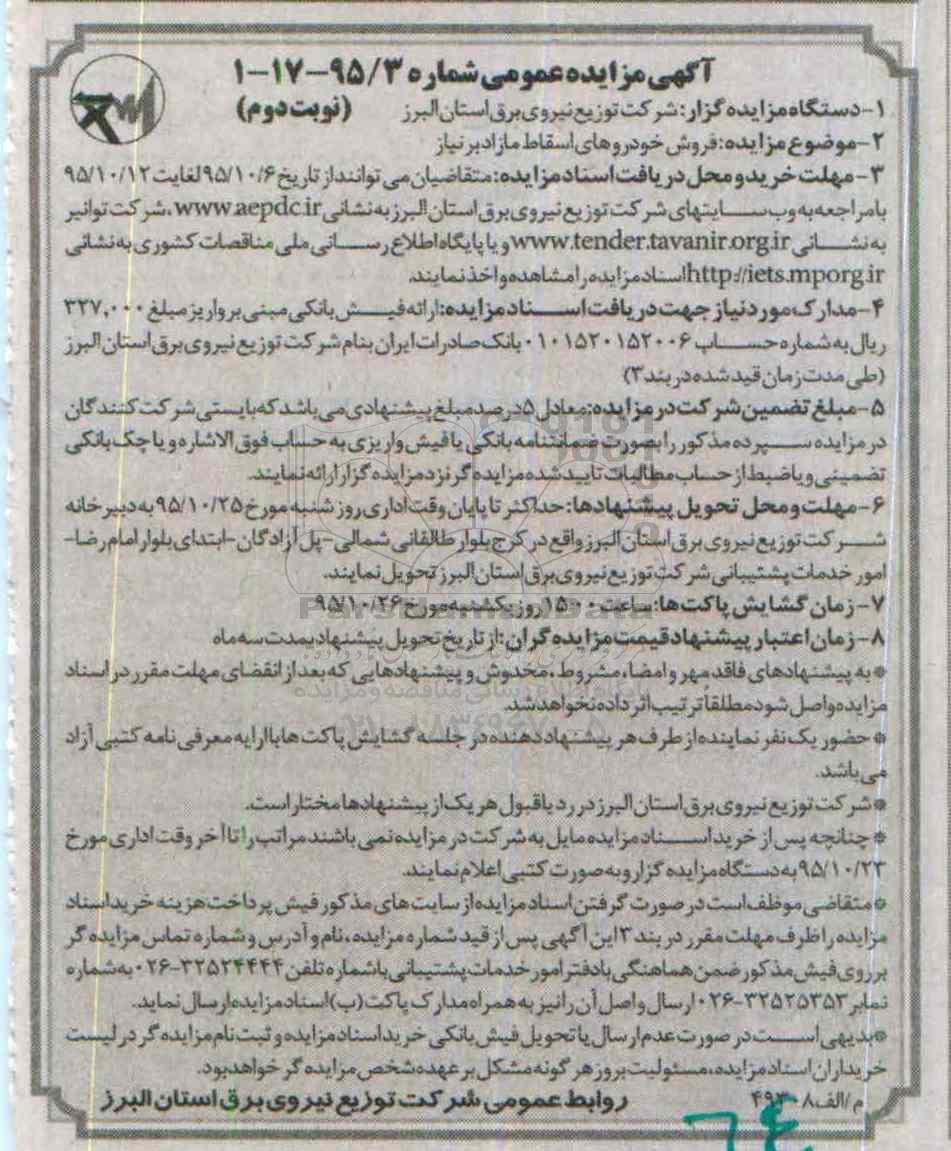 آگهی مزایده عمومی شماره ۹۵/۳-۱۷-۱
(نوبت دوم)
۱-دستگاه مزایده گزار: شرکت توزیع نیروی برق استان البرز
۲-موضوع مزایده: فروش خودروهای اسقاط مازاد بر نیاز
۳-مهلت خرید و محل دریافت اسناد مزایده: متقاضیان می توانند از تاریخ ۹۵/۱۰/۶ لغایت ۹۵/۱۰/۱۲
با مراجعه به وب سایتهای شرکت توزیع نیروی برق استان البرز به نشانی www.aepdc.ir، شرکت توانیر
به نشانی www.tender.tavanir.org.ir و یا پایگاه اطلاع رسانی ملی مناقصات کشوری به نشانی
http://iets.mporg.ir اسناد مزایده را مشاهده و اخذ نمایند.
۴-مدارک مورد نیاز جهت دریافت اسناد مزایده: ارائه فیش بانکی مبنی بر واریز مبلغ ۳۲۷,۰۰۰
ریال به شماره حساب ۰۱۰۱۵۲۰۱۵۲۰۰۶ بانک صادرات ایران بنام شرکت توزیع نیروی برق استان البرز
(طی مدت زمان قید شده در بند ۳)
۵-مبلغ تضمین شرکت در مزایده: معادل ۵ درصد مبلغ پیشنهادی می باشد که بایستی شرکت کنندگان
در مزایده سپرده مذکور را بصورت ضمانتنامه بانکی یا فیش واریزی به حساب فوق الاشاره و یا چک بانکی
تضمینی و یا ضبط از حساب مطالبات تایید شده مزایده گر نزد مزایده گزار ارائه نمایند.
۶-مهلت و محل تحویل پیشنهادها: حداکثر تا پایان وقت اداری روز شنبه مورخ ۹۵/۱۰/۲۵ به دبیرخانه
شرکت توزیع نیروی برق استان البرز واقع در کرج بلوار طالقانی شمالی-پل آزادگان-ابتدای بلوار امام رضا-
امور خدمات پشتیبانی شرکت توزیع نیروی برق استان البرز تحویل نمایند.
۷-زمان گشایش پاکت ها: ساعت ۱۵۰۰ روز یکشنبه مورخ ۹۵/۱۰/۲۶
۸-زمان اعتبار پیشنهاد قیمت مزایده گران: از تاریخ تحویل پیشنهاد بمدت سه ماه
* به پیشنهادهای فاقد مهر و امضاء، مشروط، مخدوش و پیشنهادهایی که بعد از انقضای مهلت مقرر در اسناد
مزایده واصل شود مطلقاً ترتیب اثر داده نخواهد شد.
* حضور یک نفر نماینده از طرف هر پیشنهاد دهنده در جلسه گشایش پاکت ها با ارایه معرفی نامه کتبی آزاد
می باشد.
* شرکت توزیع نیروی برق استان البرز در رد یا قبول هر یک از پیشنهادها مختار است.
* چنانچه پس از خرید اسناد مزایده مایل به شرکت در مزایده نمی باشند مراتب را تا آخر وقت اداری مورخ
۹۵/۱۰/۲۳ به دستگاه مزایده گزار و به صورت کتبی اعلام نمایند.
* متقاضی موظف است در صورت گرفتن اسناد مزایده از سایت های مذکور فیش پرداخت هزینه خرید اسناد
مزایده را ظرف مهلت مقرر در بند ۳ این آگهی پس از قید شماره مزایده، نام و آدرس و شماره تماس مزایده گر
بر روی فیش مذکور ضمن هماهنگی با دفتر امور خدمات پشتیبانی با شماره تلفن ۳۲۵۲۴۴۴۴-۰۲۶ به شماره
نمابر ۳۲۵۲۵۳۵۳-۰۲۶ ارسال و اصل آن را نیز به همراه مدارک پاکت (ب) اسناد مزایده ارسال نماید.
* بدیهی است در صورت عدم ارسال یا تحویل فیش بانکی خرید اسناد مزایده و ثبت نام مزایده گر در لیست
خریداران اسناد مزایده، مسئولیت بروز هر گونه مشکل بر عهده شخص مزایده گر خواهد بود.
م/الف
روابط عمومی شرکت توزیع نیروی برق استان البرز